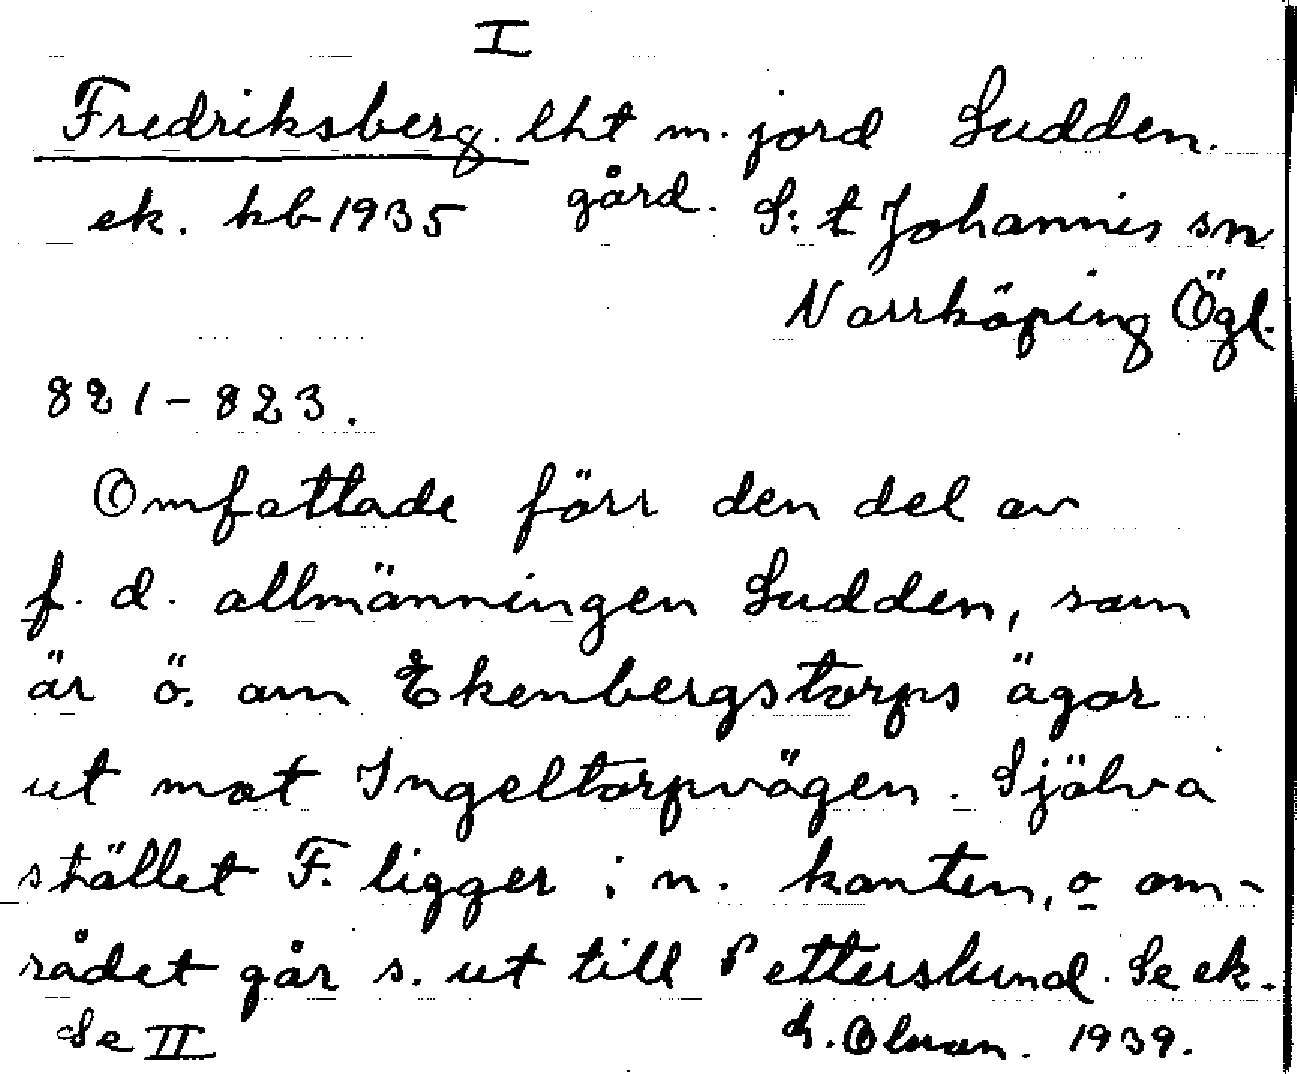 I
Fredriksberg. lht m. jord Sudden.
ek. kb 1935 gård. S:t Johannis sn
Norrköping Ögl.
821-823.
Omfattade förr den del av
f. d. allmänningen Sudden, som
är ö. om Ekenbergstorps ägor
ut mot Ingeltorpvägen. Själva
stället F. ligger i n. kanten, o om-
rådet går s. ut till Petterslund. Se ek.
Se II 1939.